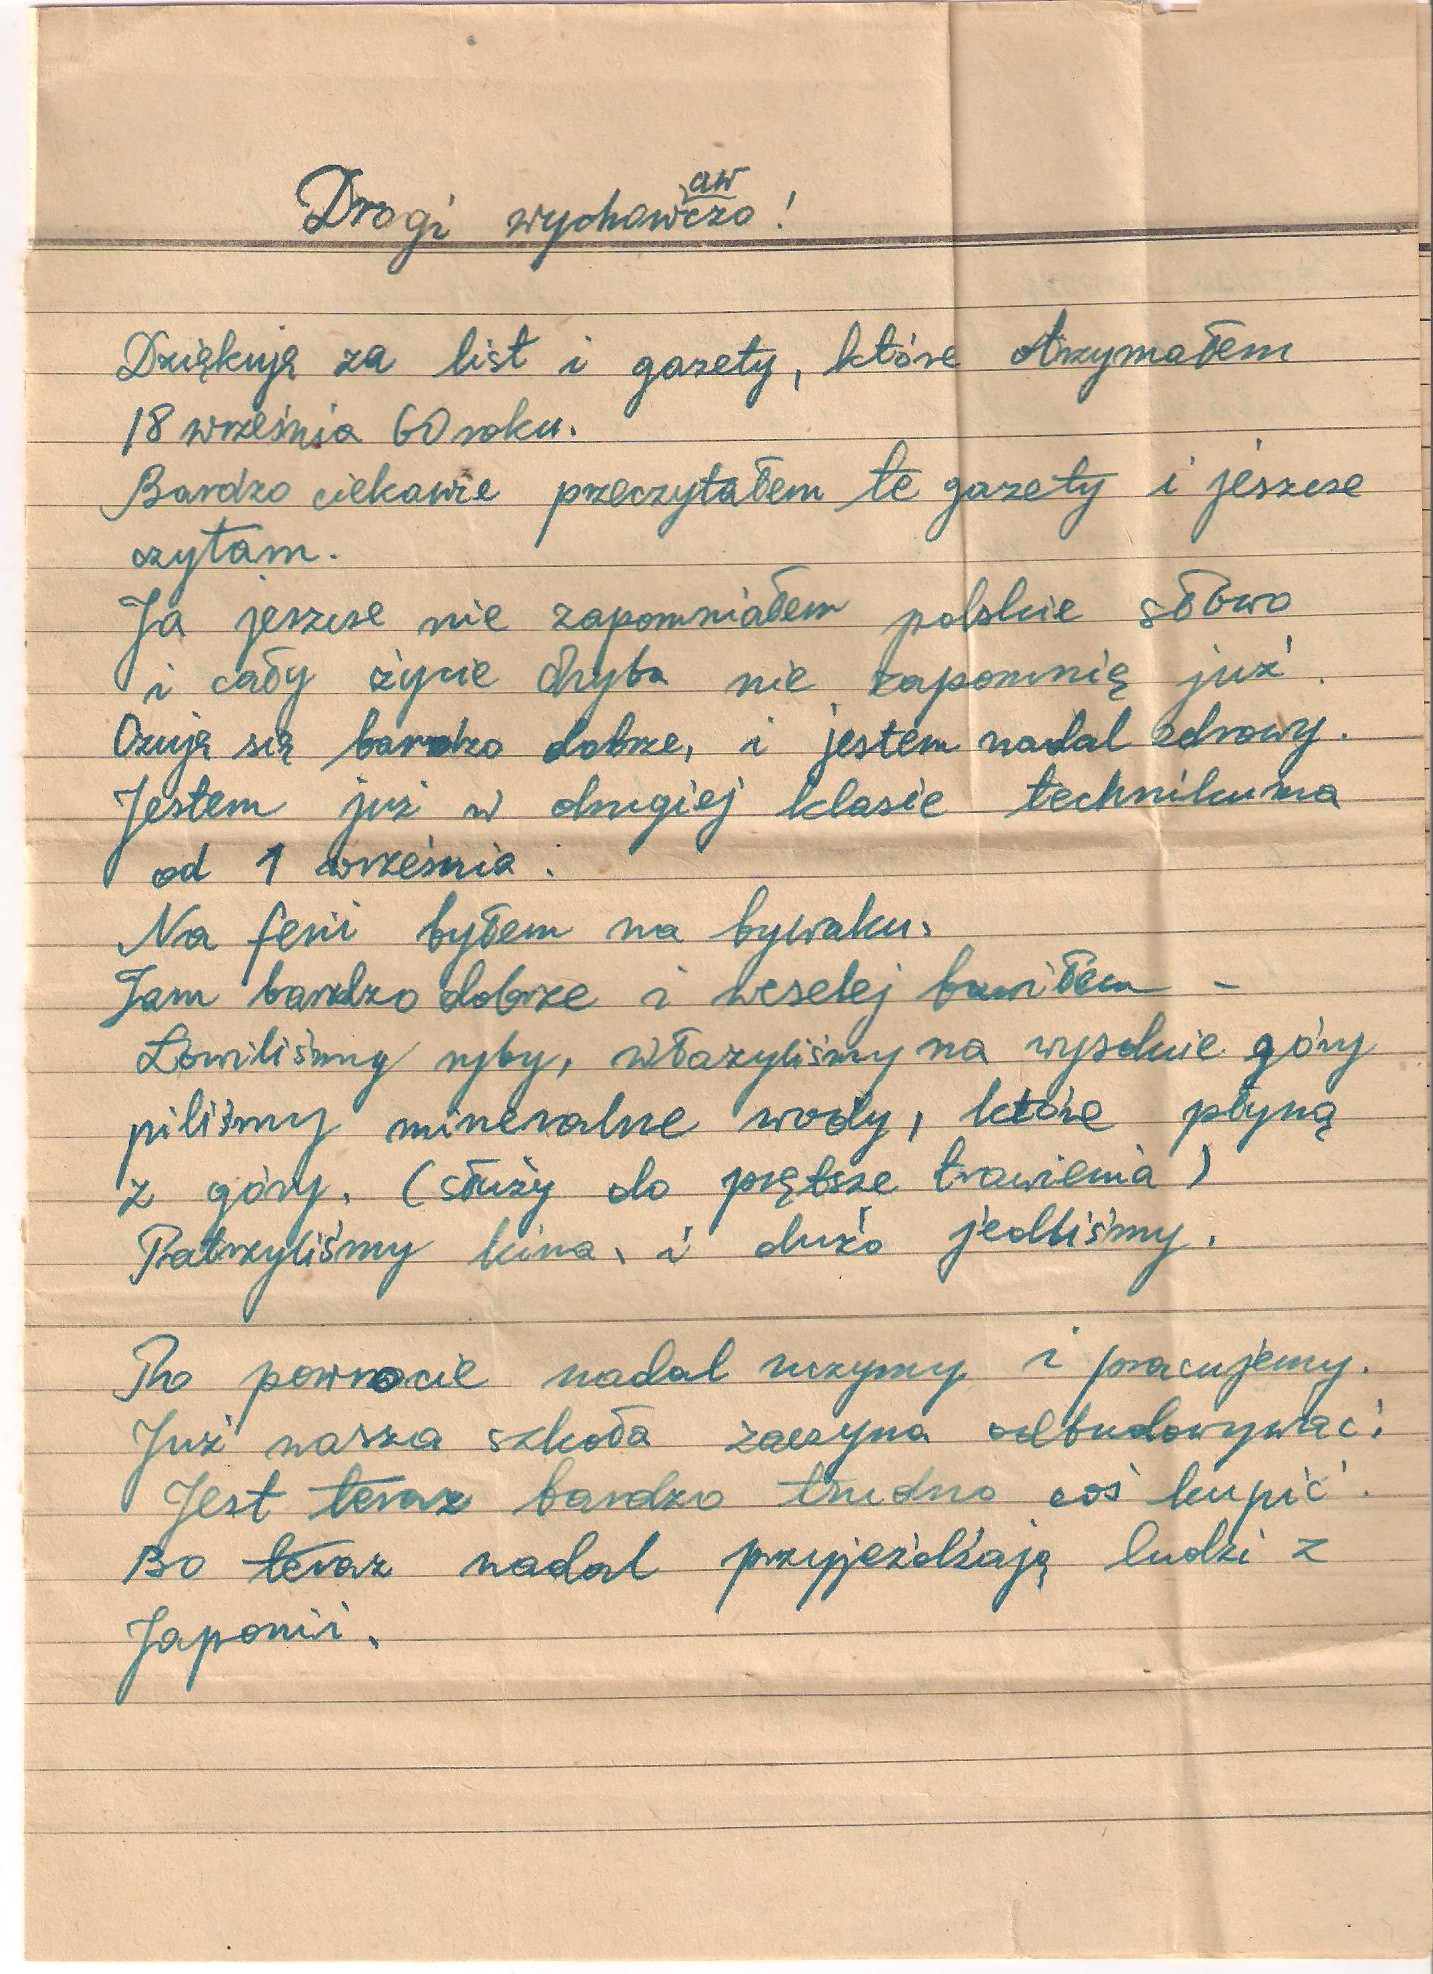 Drogi wychowawczo!
Dziękują za list i gazety, które otrzymałem
18 września 60 roku.
Bardzo ciekawie przeczytałem te gazety i jeszcse
czytam.
Ja jeszcse nie zapomniałem polskie słowo
i cały życie chyba nie zapomnię już.
Czują są bardzo dobrze, i jestem nadal zdrowy.
Jestem już w drugiej klasie technikuma
od 1 września.
Na ferii byłem na bywaku.
Tam bardzo dobrze i weselej bawiłem -
Łowiliśmy ryby, włazyliśmy na wysokie góry
piliśmy mineralne wody, które płyną
z góry. (służy do prętsze trawienia)
Patrzyliśmy kina, i dużo jedliśmy.
Po powrocie nadal uczymy i pracujemy.
Już nasza szkoła zaczyna odbudowywać.
Jest teraz bardzo trudno coś kupić.
Bo teraz nadal przyjeżdżają ludzi z
Japonii.